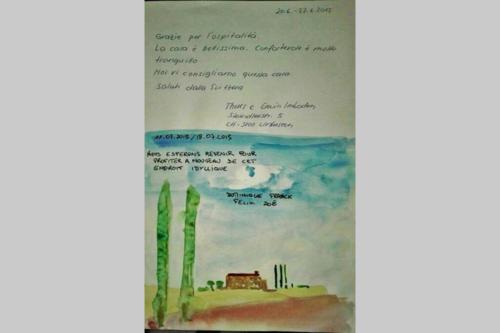 20.6. - 27.6.2015
Grazie per l'ospitalità
La casa è bellissima. Confortevole è molto
tranquillo
Noi vi consigliamo questa casa
Saluti dalla Svizzera
5
11.07.2015/18.07.2015
NOUS ESPERONS REVENIR POUR
PROFITER A NOUVEAU DE CET
ENDROIT IDYLLIQUE
DOMINIQUE FRANCK
FELIX ZOË